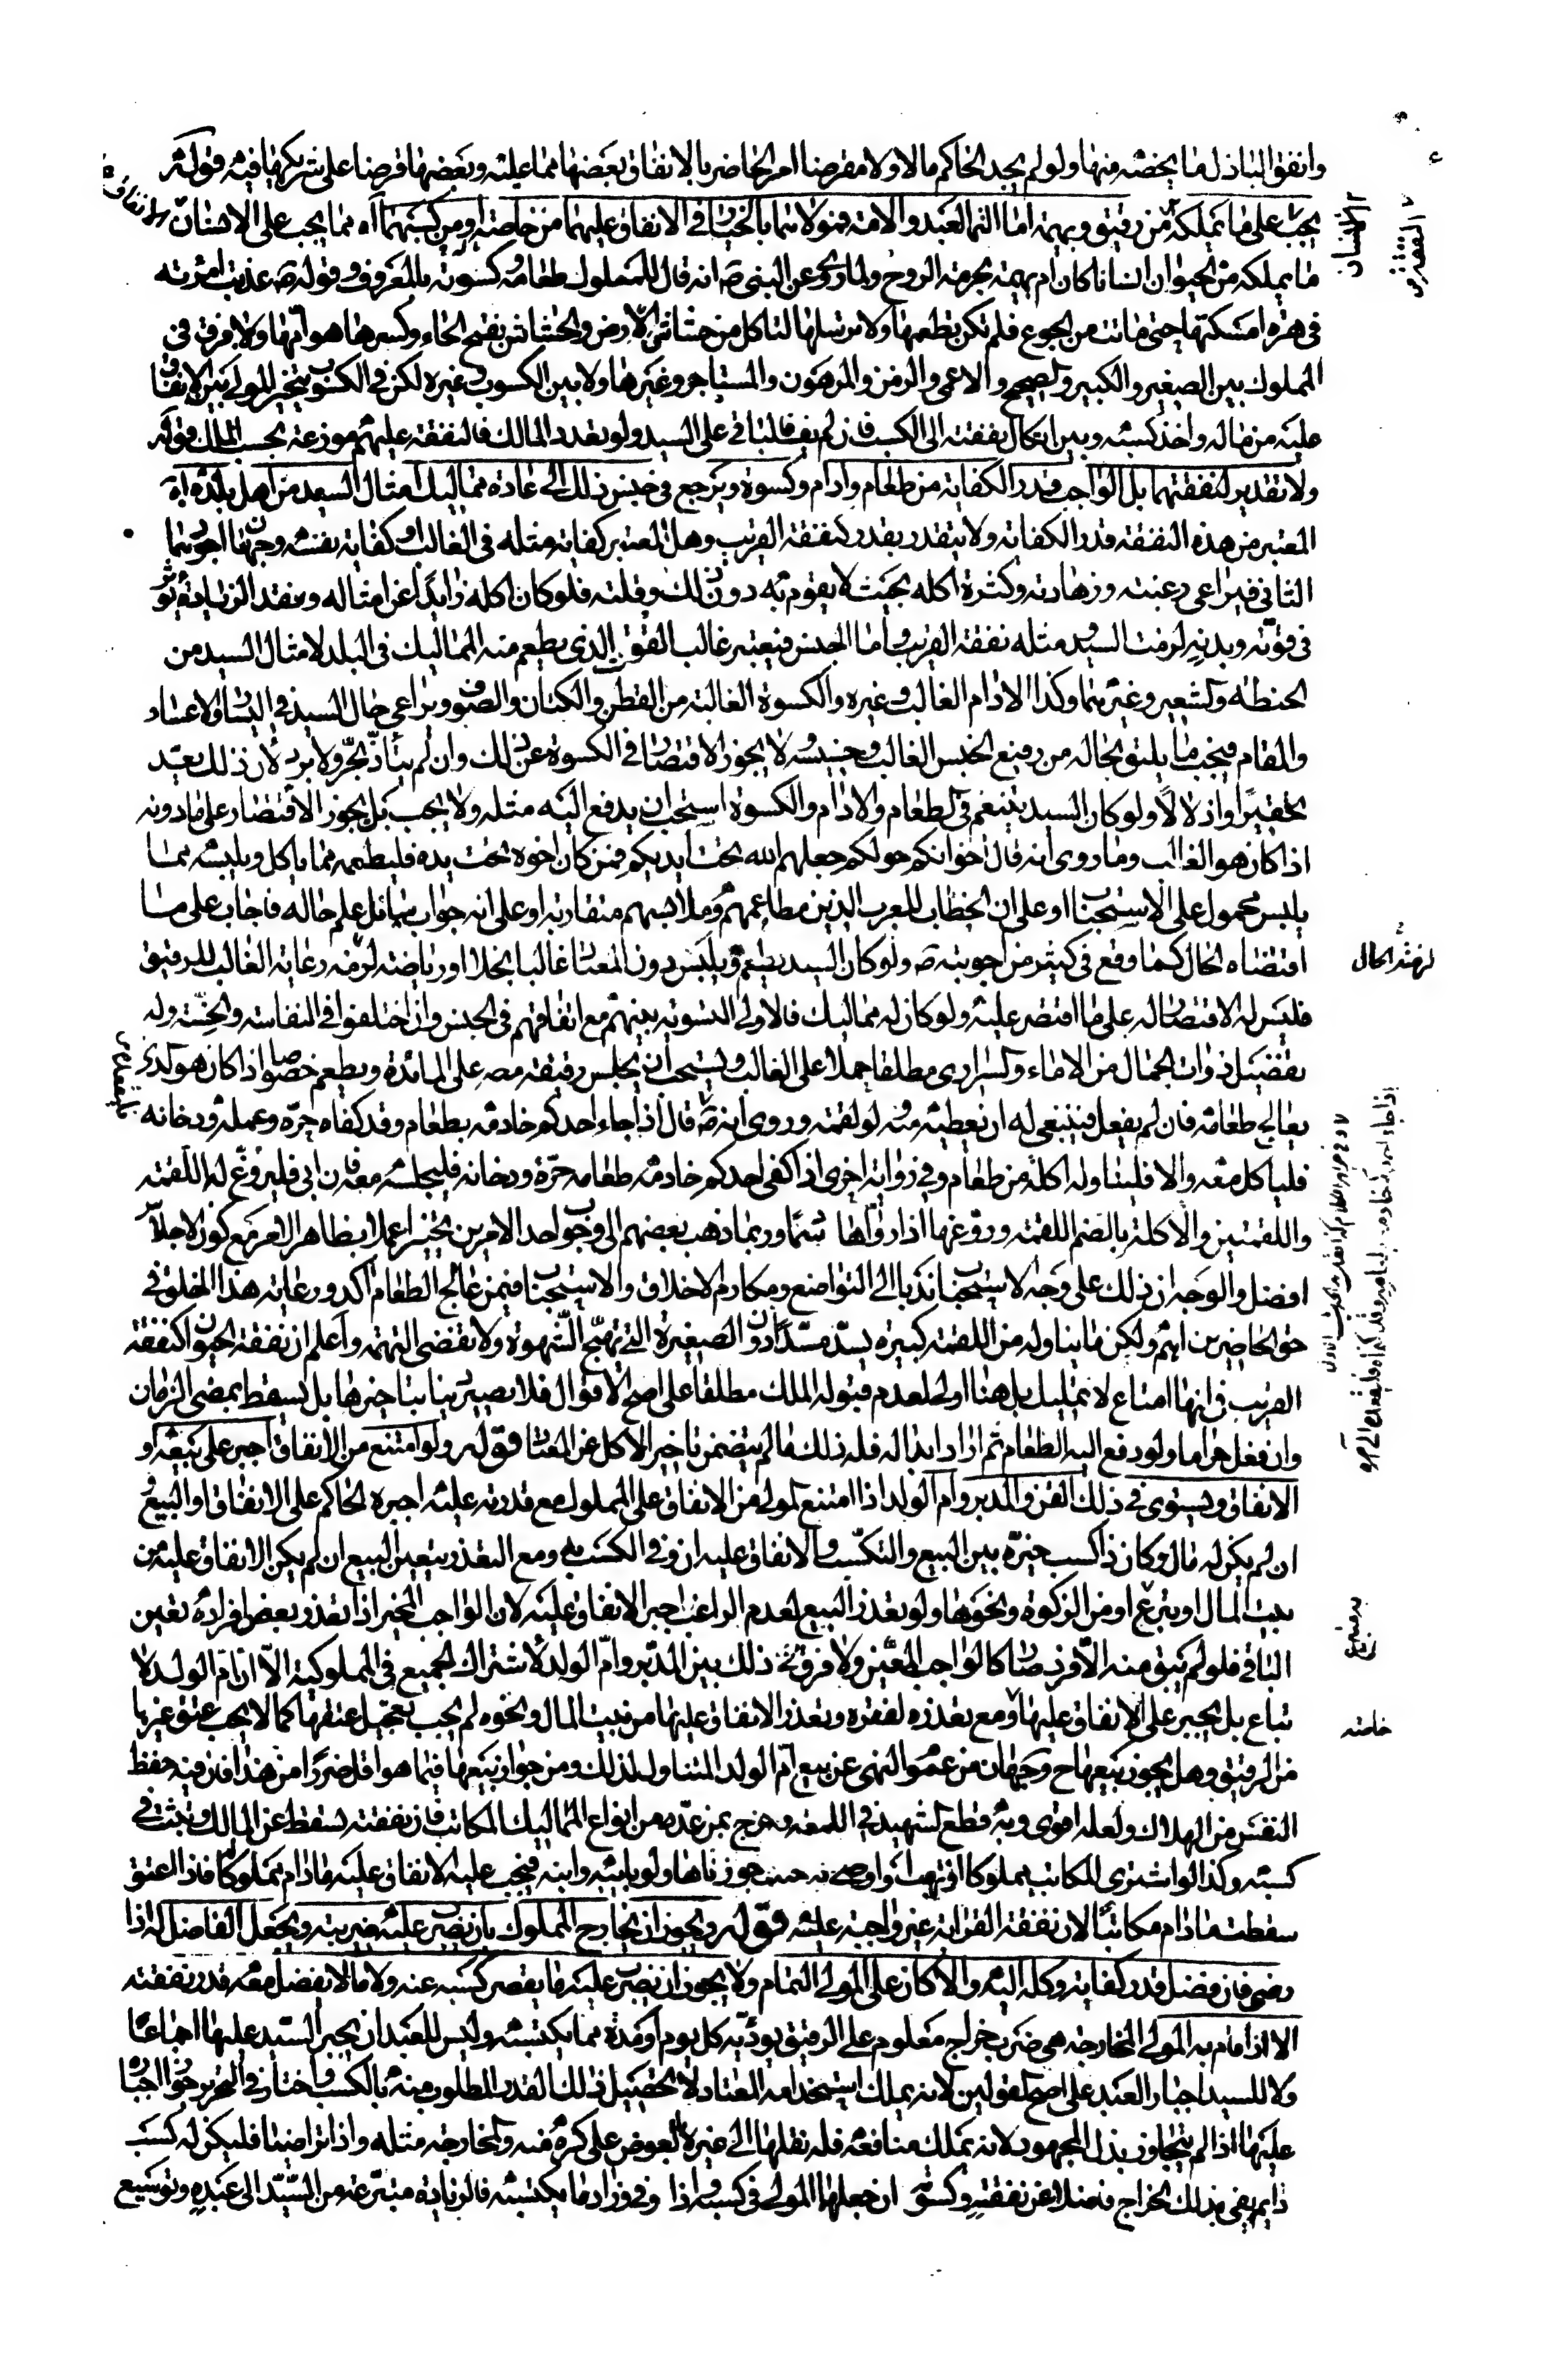 وانفق الباذل ما يخصه منها ولو لم يجد الحاكم مالا ولا مقرضا امر الحاضر بالانفاق بعضها مما عليه وبعضها قرضا على شريكه فيه قوله
يجب على ما يملكه من رقيق وبهيمة اما العبد والامة فمولاهما بالخيار في الانفاق عليهما من خاصته او من كسبهما اه مما يجب على الانسان
ما يملكه من الحيوان انسانا كان ام بهيمة لحرمة الروح ولما روي عن النبي ص انه قال للمملوك طعامه وكسوته بالمعروف وقوله ص عذبت امرئة
في هرة امسكتها حتى ماتت من الجوع فلم تكن تطعمها ولا ترسلها لتاكل من خشاش الارض والخشاش بفتح الخاء وكسرها هوامها ولا فرق في
المملوك بين الصغير والكبير والصحيح والاعمى والزمن والمرهون والمستاجر وغيرها ولا بين الكسوب وغيره لكن في الكسوب يتخير المولى بين الانفاق
عليه من ماله واخذ كسبه وبين ايكال نفقته الى الكسب فان لم يف فالباقي على السيد ولو تعدد المالك فالنفقة عليهم موزعة بحسب الملك قوله
ولا تقدير لنفقتهما بل الواجب قدر الكفاية من طعام وادام وكسوة ويرجع في جنس ذلك الى عادة مماليك امثال السيد من اهل بلده اه
المعتبر من هذه النفقة قدر الكفاية ولا يتقدر بقدر كنفقة القريب وهل المعتبر كفاية مثله في الغالب او كفاية نفسه وجهان اجودهما
الثاني فيراعى رغبته وزهادته وكثرة اكله بحيث لا يقوم به دون ذلك وقلته فلو كان اكله زايدا عن امثاله وبفقد الزيادة يؤثر
في قوته وبدنه لزمت السيد ومثله نفقة القريب واما الجنس فيعتبر غالب القوت الذي يطعم منه المماليك في البلد لامثال السيد من
الحنطة والشعير وغيرهما وكذا الادام الغالب وغيره والكسوة الغالبة من القطن والكتان والصوف ويراعى حال السيد في اليسار والاعسار
والمقام فيجب ما يليق بحاله من رفيع الجنس الغالب وخسيسه لا يجوز الاقتصار في الكسوة عن ذلك وان لم يتاذ بحر ولا برد لان ذلك يعد
تحقيرا واذلالا ولو كان السيد يتنعم في الطعام والادام والكسوة استحب ان يدفع اليه مثله ولا يجب بل يجوز الاقتصار على ما دونه
اذا كان هو الغالب وما روي انه قال اخوانكم خولكم جعلهم الله تحت ايديكم فمن كان اخوه تحت يده فليطعمه مما ياكل ويلبسه مما
يلبس محمول على الاستحباب او على ان الخطاب للعرب الذين مطاعمهم وملابسهم متقاربة او على انه جواب سائل علم حاله فاجاب على ما
اقتضاه الحال كما وقع في كثير من اجوبته ص ولو كان السيد يطعم ويلبس دون المعتاد غالبا بخلا او رياضة لزمه رعاية الغالب للرقيق
فليس له الاقتصار له على ما اقتصر عليه ولو كان له مماليك فالاولى التسوية بينهم مع اتفاقهم في الجنس وان اختلفوا في النفاسة والخسة وله
تفضيل ذوات الجمال من الاماء والسراري مطلقا حملا على الغالب ويستحب ان يجلس رقيقه معه على المائدة ويطعم خصوصا اذا كان هو الذي
يعالج طعامه فان لم يفعل فينبغي له ان يعطيه منه لو لقمة وروي انه ص قال اذا جاء احدكم خادمه بطعام وقد كفاه حره وعمله ودخانه
فلياكل معه والا فليناوله اكلة من طعام وفي رواية اخرى اذا كفى احدكم خادمه طعامه حره ودخانه فليجلسه معه فان ابى فليروغ له اللقمة
واللقمتين والاكلة بالضم اللقمة وروغها اذا رواها سمنا وربما ذهب بعضهم الى وجوب احد الامرين تخييرا عملا بظاهر الامر مع كون الاجلاس
افضل والوجه ان ذلك على وجه الاستحباب ندبا الى التواضع ومكارم الاخلاق والاستحباب فيمن عالج الطعام آكد ورعاية هذا الخلق في
حق الحاضرين اهم وليكن ما يناوله من اللقمة كبيرة يسد مسدا دون الصغيرة التي تهيج الشهوة ولا تقضي النهمة واعلم ان نفقة الحيوان كنفقة
القريب في انها امتاع لا تمليك بل هنا اولى لعدم قبوله الملك مطلقا على اصح الاقوال فلا يصير دينا بتاخيرها بل يسقط بمضي الزمان
وان فعل حراما ولو دفع اليه الطعام ثم اراد ابداله فله ذلك ما لم يتضمن تاخير الاكل عن المعتاد قوله ولو امتنع من الانفاق اجبر على بيعه او
الانفاق ويستوي في ذلك القن والمدبر وام الولد اذا امتنع المولى من الانفاق على المملوك مع قدرته عليه اجبره الحاكم على الانفاق او البيع
ان لم يكن له مال وكان ذا كسب خيره بين البيع والتكسب والانفاق عليه ان وفى الكسب به ومع التعذر يتعين البيع ان لم يكن الانفاق عليه من
بيت المال او متبرع او من الزكوة ونحوها ولو تعذر البيع لعدم الراغب اجبر الانفاق عليه لان الواجب المخير اذا تعذر بعض افراده تعين
الباقي فلو لم يبق منه الا فرد صار كالواجب المعين ولا فرق في ذلك بين المدبر وام الولد لاشتراك الجميع في المملوكية الا ان ام الولد لا
تباع بل يجبر على الانفاق عليها ومع تعذره لفقره وتعذر الانفاق عليها من بيت المال ونحوه لم يجب تعجيل عتقها كما لا يجب عتق غيرها
من الرقيق وهل يجوز بيعها ح وجهان من عموم النهي عن بيع ام الولد المتناول لذلك ومن جواز بيعها فيما هو اقل ضررا من هذا فان فيه حفظ
النفس من الهلاك ولعله اقوى وبه قطع الشهيد في اللمعة وخرج بمن عده من انواع المماليك المكاتب فان نفقته تسقط عن المالك وتثبت في
كسبه وكذا لو اشترى المكاتب مملوكا او اتهب او اوصي به حيث جوزناها ولو بابيه وابنه فيجب عليه الانفاق عليه ما دام مملوكا فاذا اعتق
سقطت ما دام مكاتبا لان نفقة القرابة غير واجبة عليه قوله ويجوز ان يخارج المملوك بان يضرب عليه ضريبة ويجعل الفاضل له اذا
رضي فان فضل قدر كفايته وكله اليه والا كان على المولى التمام ولا يجوز ان يضرب عليه ما يقصر كسبه عنه ولا ما لا يفضل معه قدر نفقته
الا اذا قام به المولى المخارجة هي ضرب خراج معلوم على الرقيق يوديه كل يوم او مدة مما يكتسبه وليس للعبد ان يجبر السيد عليها اجماعا
ولا للسيد اجبار العبد على اصح القولين لانه يملك استخدامه المعتاد لا تحصيل ذلك القدر المطلوب منه بالكسب واختار في التحرير جواز اجباره
عليها اذا لم يتجاوز بذل المجهود لانه يملك منافعه فله نقلها الى غيره بالعوض على كره منه والمخارجة مثله واذا تراضيا فليكن له كسب
دايم يفي بذلك الخراج فاضلا عن نفقته وكسوته ان جعلها المولى في كسبه واذا وفى وزاد ما يكتسبه فالزيادة مبرة من السيد الى عبده وتوسيع